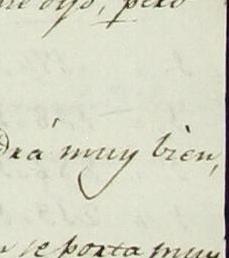 me dijo, pero
rá muy bien,
n se porta muy